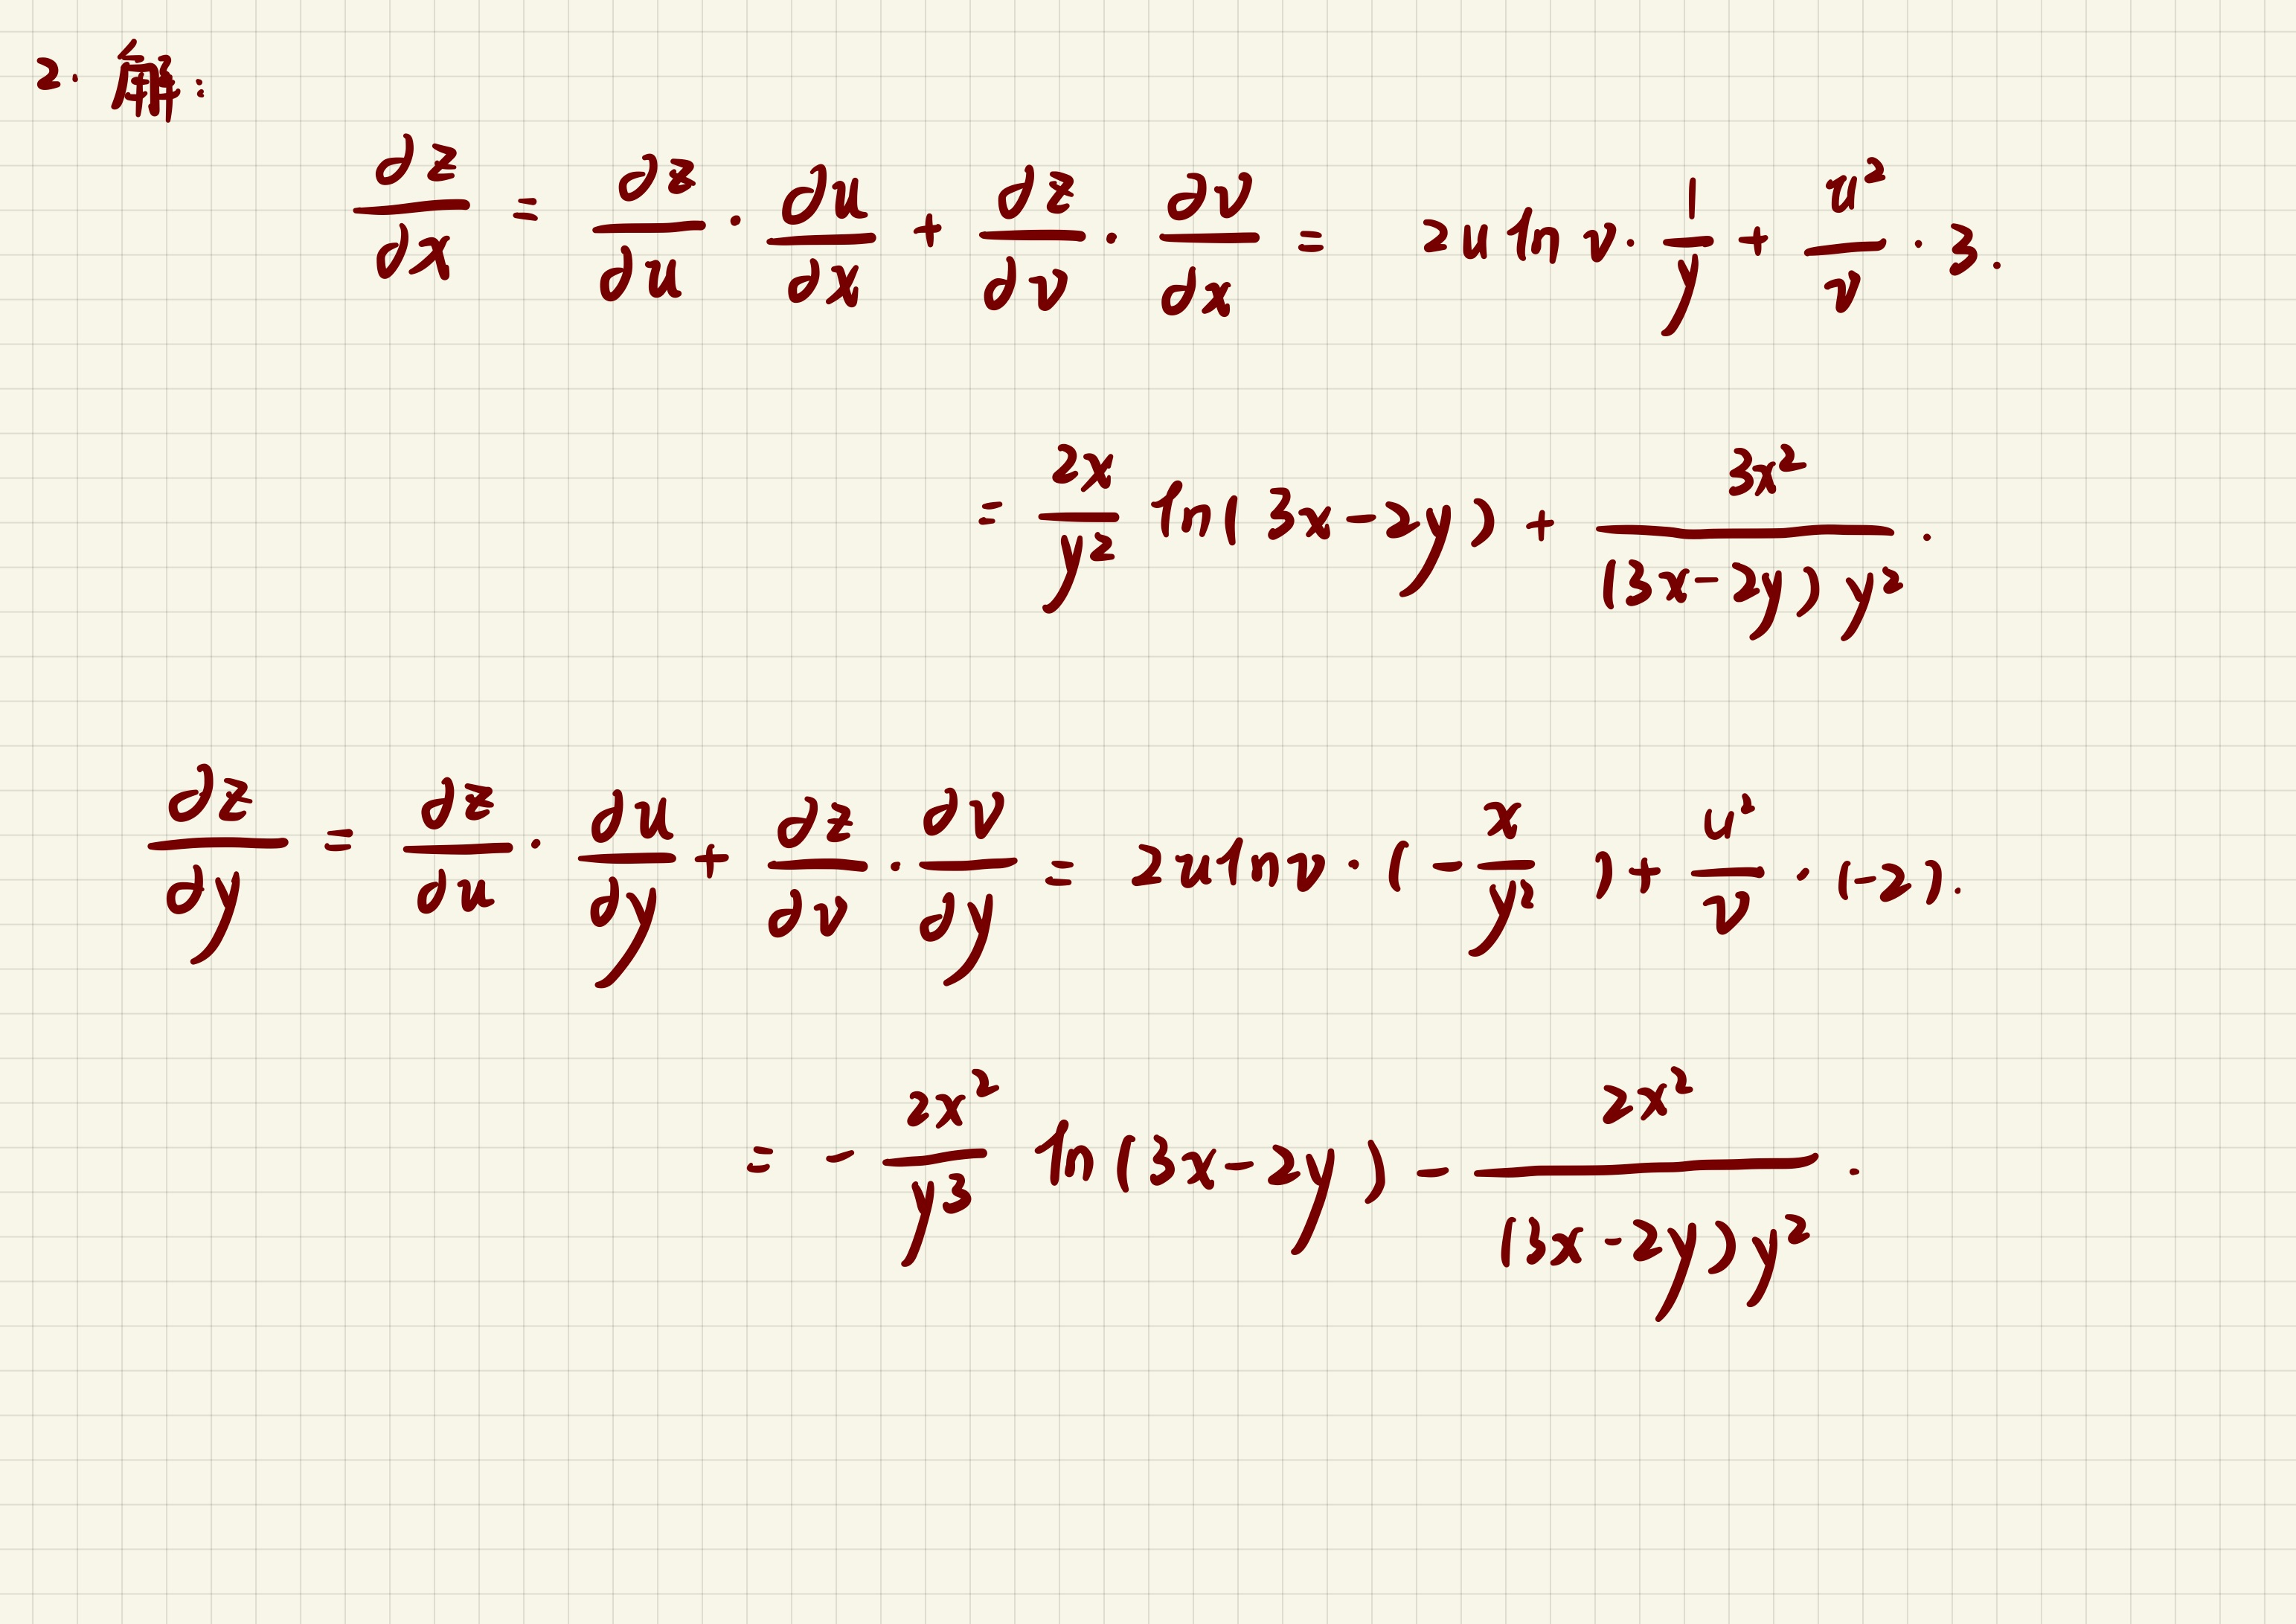 2. 解:
∂z/∂x = ∂z/∂u · ∂u/∂x + ∂z/∂v · ∂v/∂x = 2u ln v · 1/y + u²/v · 3.
= 2x/y² ln(3x-2y) + 3x²/((3x-2y)y²).
∂z/∂y = ∂z/∂u · ∂u/∂y + ∂z/∂v · ∂v/∂y = 2u ln v · (-x/y²) + u²/v · (-2).
= - 2x²/y³ ln(3x-2y) - 2x²/((3x-2y)y²).